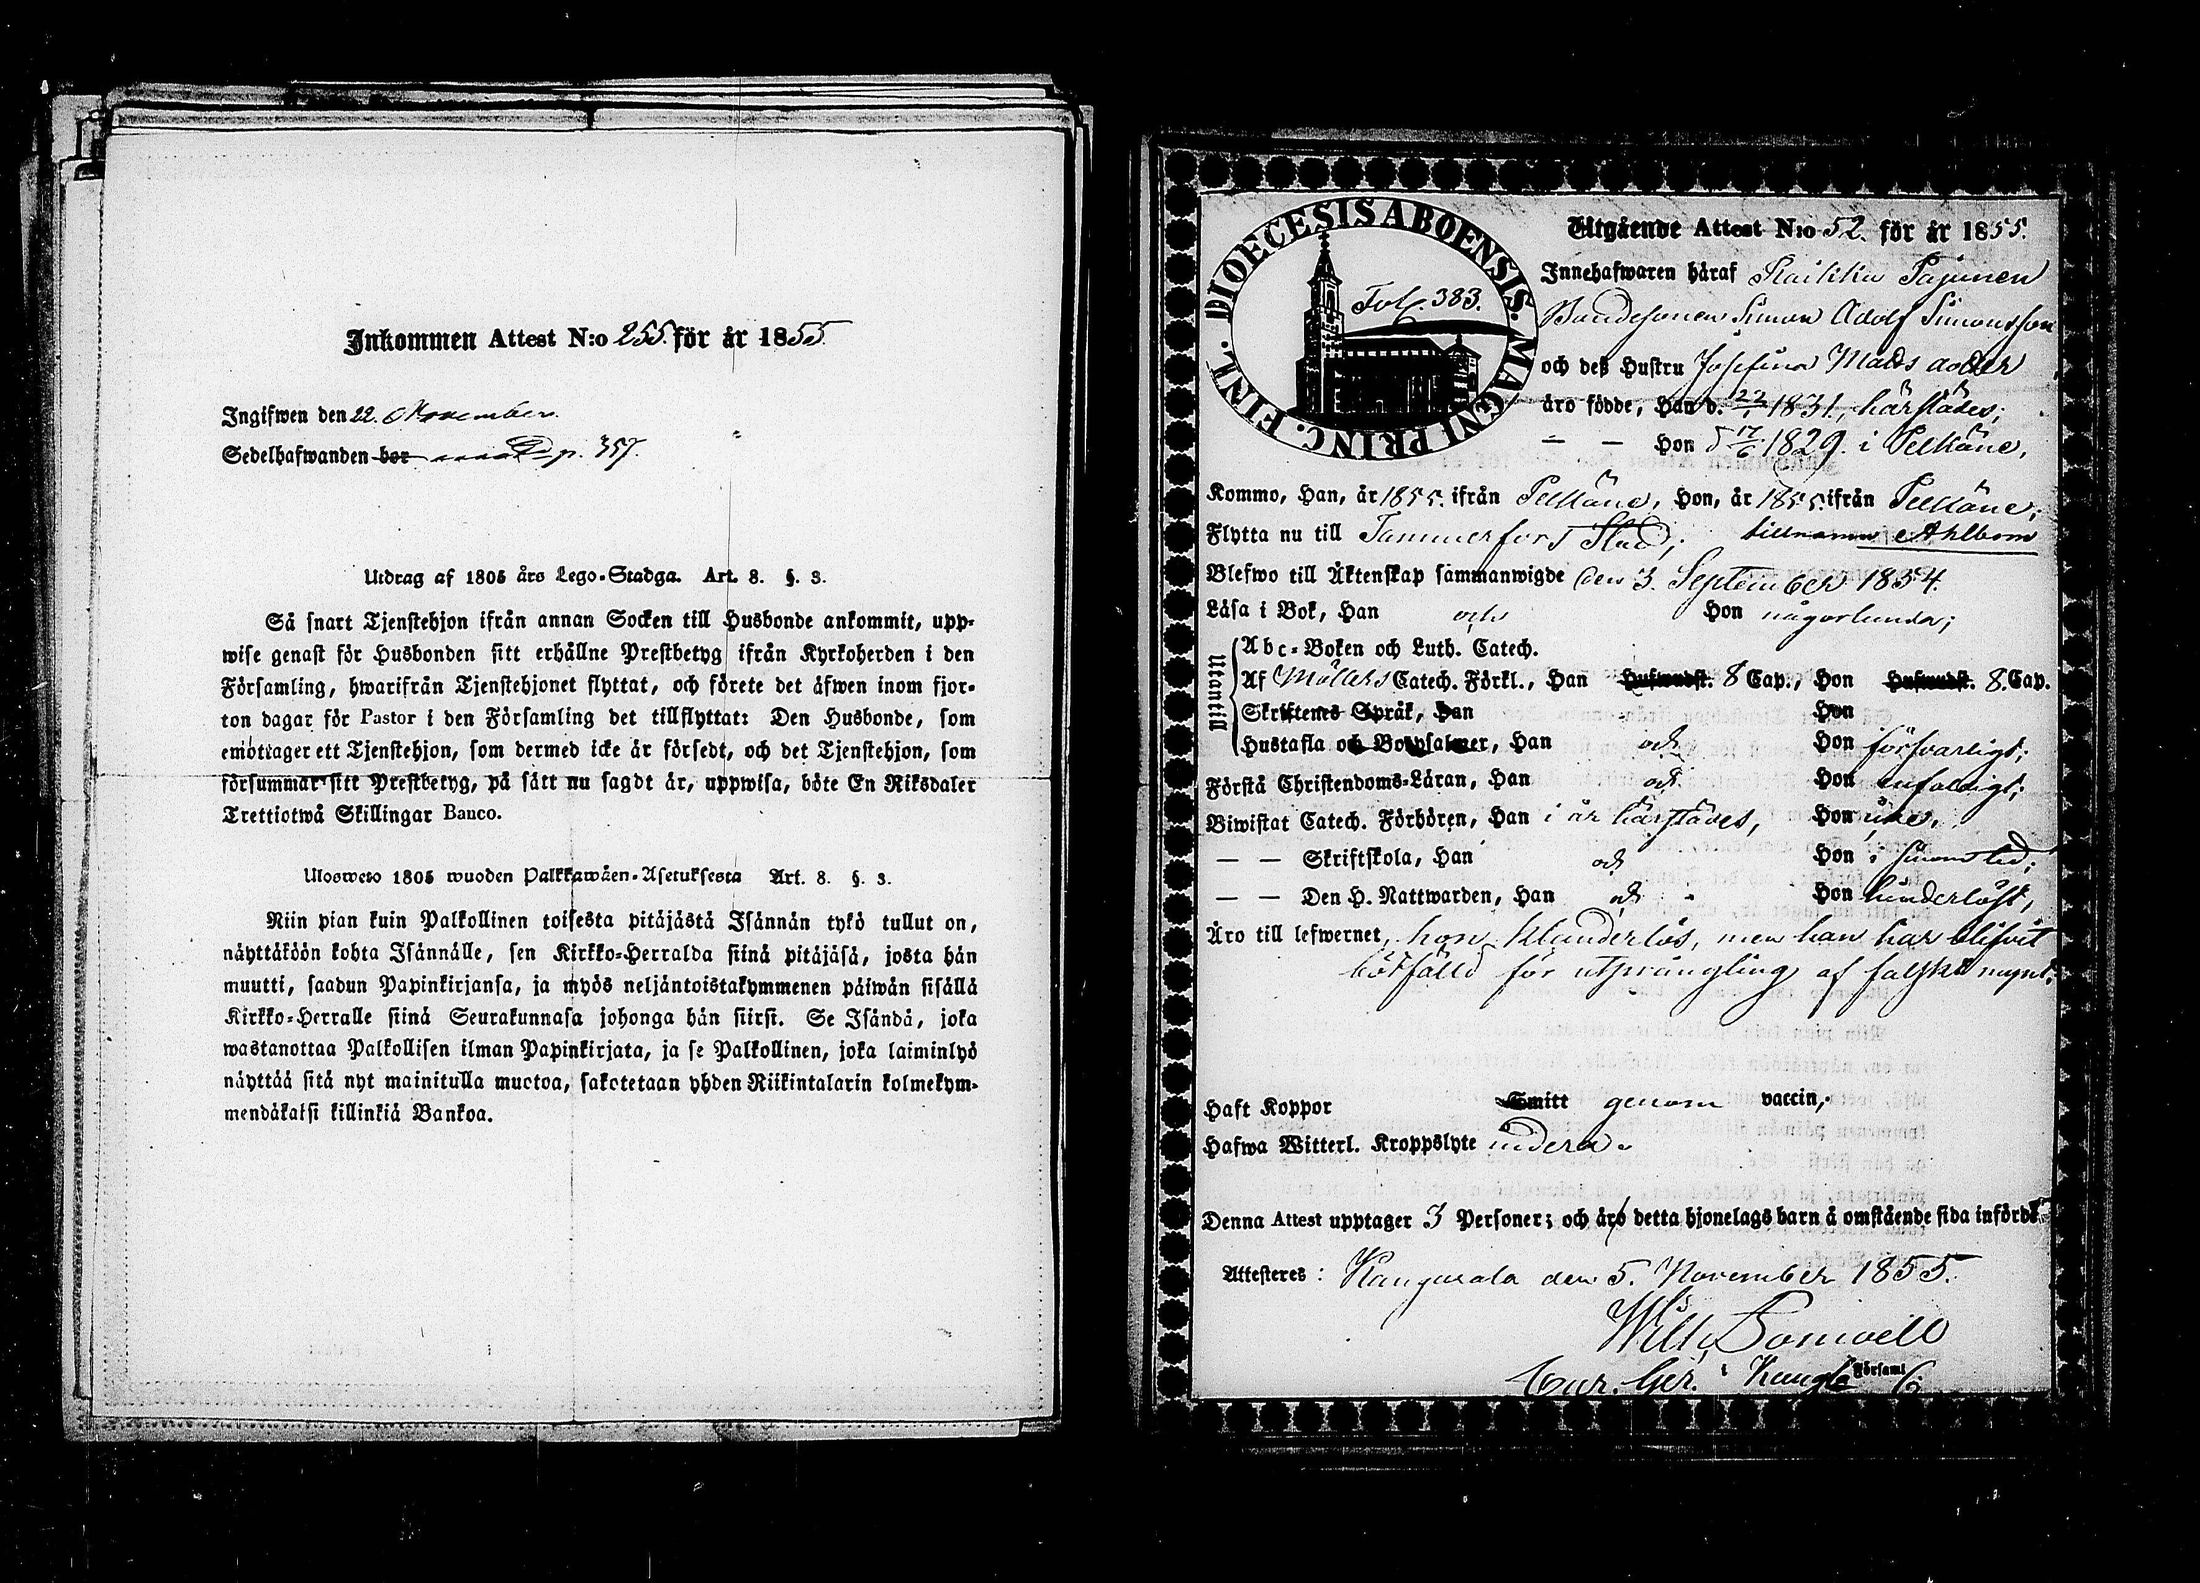 Inkommen Attest N:o 255. för år 1855.
Ingifwen den 22. November.
Sedelhafwanden bor p. 357.
Utdrag af 1805 års Lego-Stadga. Art. 8. §. 3.
Så snart Tjenstehjon ifrån annan Socken till Husbonde ankommit, upp-
wise genast för Husbonden sitt erhållne Prestbetyg ifrån Kyrkoherden i den
Församling, hwarifrån Tjenstehjonet flyttat, och förete det äfwen inom fjor-
ton dagar för Pastor i den Församling det tillflyttat: Den Husbonde, som
emottager ett Tjenstehjon, som dermed icke är försedt, och det Tjenstehjon, som
försummar sitt Prestbetyg, på sätt nu sagdt är, uppwisa, böte En Riksdaler
Trettiotwå Skillingar Banco.
Ulosweto 1805 wuoden Palkkawäen-Asetuksesta Art. 8. §. 3.
Niin pian kuin Palkollinen toisesta pitäjästä Isännän tykö tullut on,
näyttäköön kohta Isännälle, sen Kirkko-Herralda siinä pitäjäsä, josta hän
muutti, saadun Papinkirjansa, ja myös neljäntoistakymmenen päiwän sisällä
Kirkko-Herralle siinä Seurakunnasa johonga hän siirsi. Se Isändä, joka
wastanottaa Palkollisen ilman Papinkirjata, ja se Palkollinen, joka laiminlyö
näyttää sitä nyt mainitulla muotoa, sakotetaan yhden Riikintalarin kolmekym-
mendäkaksi killinkiä Bankoa.
DIOECESIS ABOENSIS. MAGNI PRINC. FINL.
Fol. 383.
Utgående Attest N:o 52. för år 1855.
Innehafwaren häraf Raikku Pajunen
Bondesonen Simon Adolf Simonsson
och deß Hustru Josefina Mats dotter
äro födde, Han d. 22/1 1831, härstädes;
— — Hon d 17/6 1829. i Pelkäne,
Kommo, Han, år 1855. ifrån Pelkäne, Hon, år 1855. ifrån Pelkäne;
Flytta nu till Tammerfors Stad; tillnamn Ahlbom
Blefwo till Äktenskap sammanwigde den 3. September 1854.
Läsa i Bok, Han och Hon någorlunda;
Utantill
Abc-Boken och Luth. Catech.
Af Möllers Catech. Förkl., Han Hufwudst. 8 Cap., Hon Hufwudst. 8. Cap.
Skriftenes Språk, Han Hon
Hustafla och Botpsalmer, Han och Hon försvarligt;
Förstå Christendoms-Läran, Han och Hon enfaldigt;
Biwistat Catech. Förhören, Han i år härstädes, Hon
— — Skriftskola, Han och Hon i sinom tid;
— — Den H. Nattwarden, Han och Hon hinderlöst,
Äro till lefwernet, hon klanderlös, men han har blifvit
bötfälld för utprångling af falskt mynt.
Haft Koppor Smitt genom vaccin,
Hafwa Witterl. Kroppslyte
Denna Attest upptager 3 Personer; och äro detta hjonelags barn å omstående sida införde
Attesteres: Kangasala den 5. November 1855.
i Församl